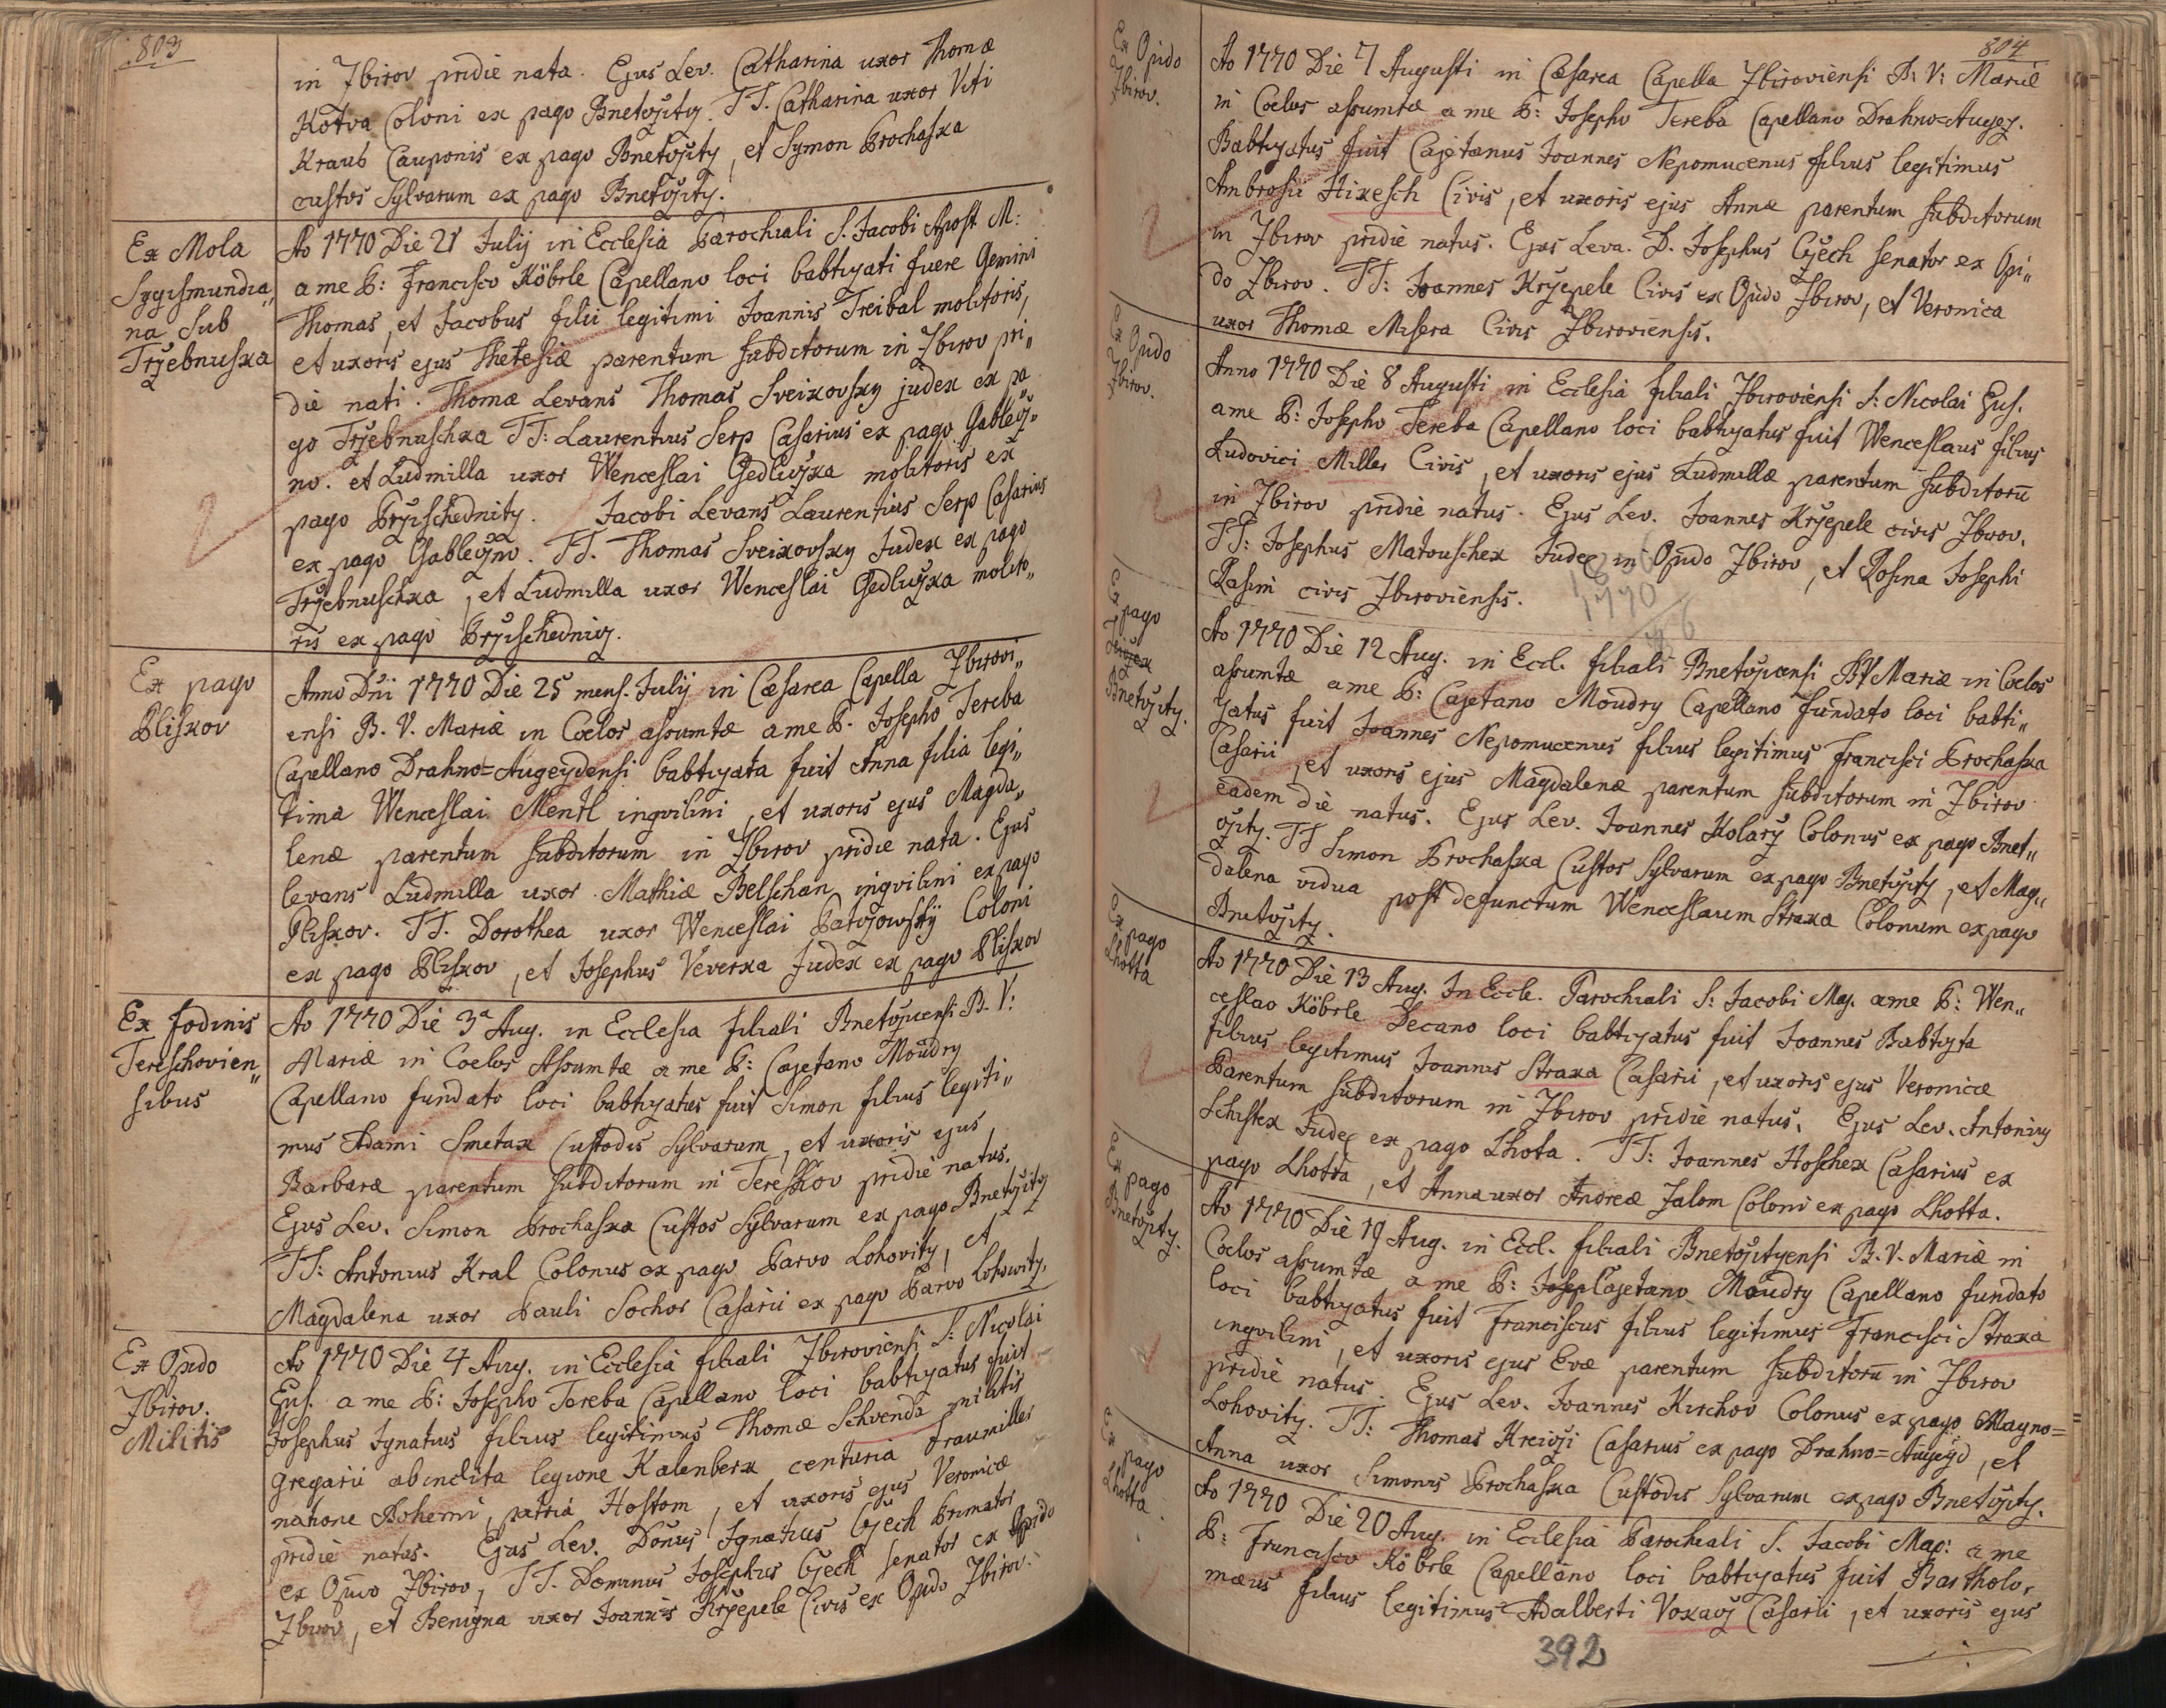 803
in Zbirov pridie nata. Ejus Lev. Catharina uxor Thomæ
Kotva Coloni ex pago Bnetojity. TT. Catharina uxor Viti
Kraus Cauponis ex pago Bnetojity, et Symon Prochaska
custos Sylvarum ex pago Bnetojity.
Ex Mola
Sygismundia„
na sub
Trzebnuska
Ao 1770 Die 21 Julij in Ecclesia Parochiali S. Jacobi Apost M:
a me P: Francisco Köbrle Capellano loci babtizati fuere Gemini
Thomas, et Jacobus filii legitimi Joannis Treibal molitoris,
et uxoris ejus Theresiæ parentum subditorum in Zbirov pri„
die nati. Thomæ Levans Thomas Sveikovsky judex ex pa
go Trzebnuschka TT: Laurentius Serp Casarius ex pago Gableij„
no. et Ludmilla uxor Wenceslai Gedlicžka molitoris ex
pago Przischednity. Jacobi Levans Laurentius Serp Casarius
ex pago Gableijno. TT. Thomas Sveikovsky Judex ex pago
Trzebnuschka, et Ludmilla uxor Wenceslai Gedliczka molito„
ris ex pago Przischednicz.
Ex pago
Pliskov
Anno Dni 1770 Die 25 mens. Julij in Cæsarea Capella Zbirovi„
ensi B. V. Mariæ in Coelos assumtæ a me P. Josepho Tereba
Capellano Drahno=Augezdensi babtizata fuit Anna filia legi„
tima Wenceslai Mentl inqvilini, et uxoris ejus Magda„
lenæ parentum subditorum in Zbirov pridie nata. Ejus
levans Ludmilla uxor Mathiæ Belschan inqvilini ex pago
Pliskov. TT. Dorothea uxor Wenceslai Ratzowskÿ Coloni
ex pago Pliskov, et Josephus Veverka Judex ex pago Pliskov
Ex fodinis
Tereschovien„
sibus
Ao 1770 Die 3a Aug. in Ecclesia filiali Bnetojicensi B. V:
Mariæ in Coelos Assumtæ a me P: Cajetano Moudry
Capellano fundato loci babtizatus fuit Simon filius legiti„
mus Adami Smetak Custodis Sylvarum, et uxoris ejus
Barbaræ parentum subditorum in Tereškov pridie natus.
Ejus Lev. Simon Prochaska Custos Sylvarum ex pago Bnetojity
TT: Antonius Kral Colonus ex pago Parvo Lohovity, et
Magdalena uxor Pauli Sochor Casarii ex pago Parvo Lohowity.
Ex Opido
Zbirov.
Militis
Ao 1770 Die 4 Aug. in Ecclesia filiali Zbiroviensi S: Nicolai
Eps. a me P: Josepho Tereba Capellano loci babtizatus fuit
Josephus Ignatius filius legitimus Thomæ Schvenda militis
gregarii ab inclita legione Kalenberk centuria Fraumiller
natione Bohemi, patria Hostom, et uxoris ejus Veronicæ
pridie natus. Ejus Lev. Donus Ignatius Czech Primator
ex Opido Zbirov, TT. Dominus Josephus Czech senator ex Opido
Zbirov, et Benigna uxor Joannis Krzepele Civis ex Opido Zbirov.
804
Ex Opido
Zbirov.
Ao 1770 Die 7 Augusti in Cæsarea Capella Zbiroviensi B: V: Mariæ
in Coelos assumtæ a me P: Josepho Tereba Capellano Drahno=Augez.
Babtizatus fuit Cajetanus Joannes Nepomucenus filius legitimus
Ambrosii Hixesch Civis, et uxoris ejus Annæ parentum subditorum
in Zbirov pridie natus. Ejus Leva. D. Josephus Czech senator ex Opi„
do Zbirov. TT: Joannes Krzepele Civis ex Opido Zbirov, et Veronica
uxor Thomæ Misera Civis Zbiroviensis.
Ex Opido
Zbirov.
Anno 1770 Die 8 Augusti in Ecclesia filiali Zbiroviensi S: Nicolai Eps.
a me P: Josepho Tereba Capellano loci babtizatus fuit Wenceslaus filius
Ludovici Miller Civis, et uxoris ejus Ludmillæ parentum subditorū
in Zbirov pridie natus. Ejus Lev. Joannes Krzepele civis Zbirov.
TT: Josephus Matouschek Judex in Opido Zbirov, et Rosina Josephi
Rasim civis Zbiroviensis.
1770
Ex pago
Bnetojity.
Ao 1770 Die 12 Aug. in Eccl. filiali Bnetojicensi BV Mariæ in Coelos
assumtæ a me P: Cajetano Moudry Capellano fundato loci babti„
zatus fuit Joannes Nepomucenus filius legitimus Francisci Prochaska
Casarii, et uxoris ejus Magdalenæ parentum subditorum in Zbirov
eadem die natus. Ejus Lev. Joannes Kolarz Colonus ex pago Bnet„
ojity. TT Simon Prochaska Custos Sylvarum ex pago Bnetojity, et Mag„
dalena vidua post defunctum Wenceslaum Straka Colonum ex pago
Bnetojity.
Ex pago
Lhotta
Ao 1770 Die 13 Aug. In Eccle. Parochiali S: Jacobi Maj. a me P: Wen„
ceslao Köbrle Decano loci babtizatus fuit Joannes Babtista
filius legitimus Joannis Straka Casarii, et uxoris ejus Veronicæ
Parentum subditorum in Zbirov pridie natus. Ejus Lev. Antonius
Schistek Judex ex pago Lhota. TT: Joannes Hoschek Casarius ex
pago Lhotta, et Anna uxor Andreæ Zalom Coloni ex pago Lhotta.
Ex pago
Bnetojity.
Ao 1770 Die 19 Aug. in Eccl. filiali Bnetojityensi B. V. Mariæ in
Coelos assumtæ a me P: Josep Cajetano Moudry Capellano fundato
loci babtizatus fuit Franciscus filius legitimus Francisci Straka
inqvilini, et uxoris ejus Evæ parentum subditorū in Zbirov
pridie natus. Ejus Lev. Joannes Kirchov Colonus ex pago Magno=
Lohovity. TT: Thomas Kreiczi Casarius ex pago Drahno=Augezd, et
Anna uxor Simonis Prochaska Custodis Sylvarum ex pago Bnetojity.
Ex pago
Lhotta.
Ao 1770 Die 20 Aug. in Ecclesia Parochiali S. Jacobi Maj: a me
P: Francisco Köbrle Capellano loci babtizatus fuit Bartholo„
mæus filius legitimus Adalberti Vokacz Casarii, et uxoris ejus
392